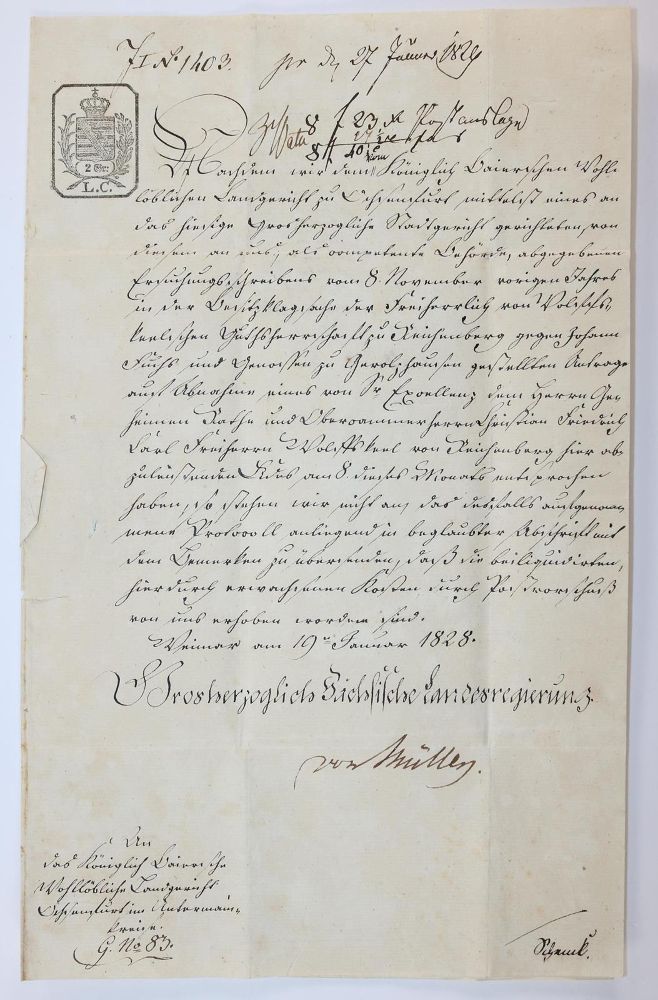 J. I. No 1403. pr. d. 27 Januar 1828
8 f 23 xr Postauslage
2 Gr:
L. C.
Nachdem wir dem Königlich Baierschen Wohl-
löblichen Landgericht zu Ochsenfurt mittelst eines an
das hiesige Grosherzogliche Stadtgericht gerichteten, von
diesem an uns, als competente Behörde, abgegebenen
Ersuchungsschreibens vom 8. November vorigen Jahres
in der Besitzklagsache der Freiherrlich von Wolffs-
keelischen Guthsherrschaft zu Reichenberg gegen Johann
Fuchs und Genossen zu Geroldshausen gestellten Antrage
auf Abnahme eines von Sr Excellenz dem Herrn Ge-
heimen Rathe und Obercammerherrn Christian Friedrich
Carl Freiherrn Wolffskeel von Reichenberg hier ab-
zuleistenden Eides, am 8. dieses Monats entsprochen
haben, so stehen wir nicht an, das desfalls aufgenom-
mene Protocoll anliegend in beglaubter Abschrift mit
dem Bemerken zu übersenden, daß die beiliquidirten,
hierdurch erwachsenen Kosten durch Postvorschuß
von uns erhoben worden sind.
Weimar am 19n Januar 1828.
Grosherzoglich Sächsische Landesregierung
von Müller.
An
das Königlich Baiersche
Wohllöbliche Landgericht
Ochsenfurt im Untermain-
kreise.
G. No 83.
Schenk.